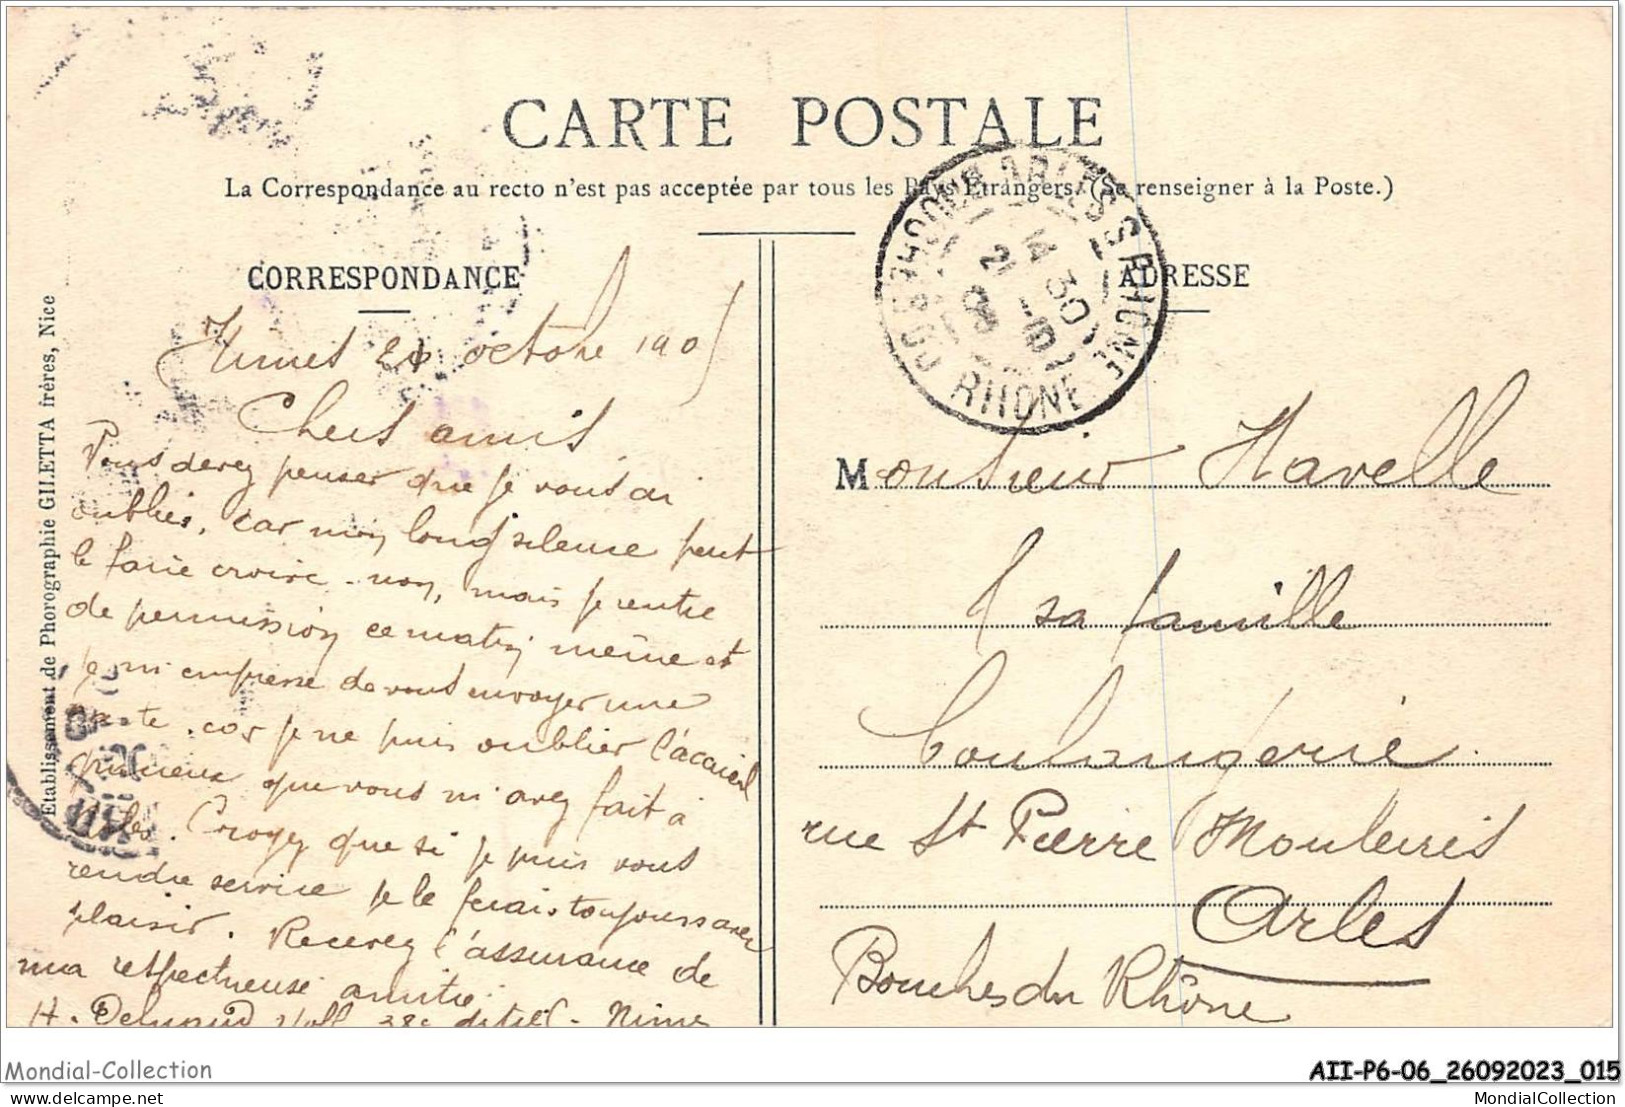 CARTE POSTALE
La Correspondance au recto n'est pas acceptée par tous les Pays Etrangers. (Se renseigner à la Poste.)
CORRESPONDANCE
Nimes 20 octobre 190
Chers amis
Vous devez penser que je vous ai
oublier, car mon long silence peut
le faire croire - non, mais je rentre
de permission ce matin même et
je m'empresse de vous envoyer une
carte. car je ne puis oublier l'accueil
que vous m'avez fait à
Arles. Croyez que si je puis vous
rendre service je le ferais toujours avec
plaisir. Recevez l'assurance de
ma respectueuse amitié.
H. 38e Nimes
Etablissement de Phorographie GILETTA frères, Nice
ADRESSE
ARLES S RHONE
14 30
21 -10
BOUCHES DU RHONE
Monsieur Navelle
& sa famille
boulangerie
rue St Pierre Mouleires
Arles
Bouches du Rhône
Mondial-Collection
AII-P6-06_26092023_015
delcampe.net
MondialCollection